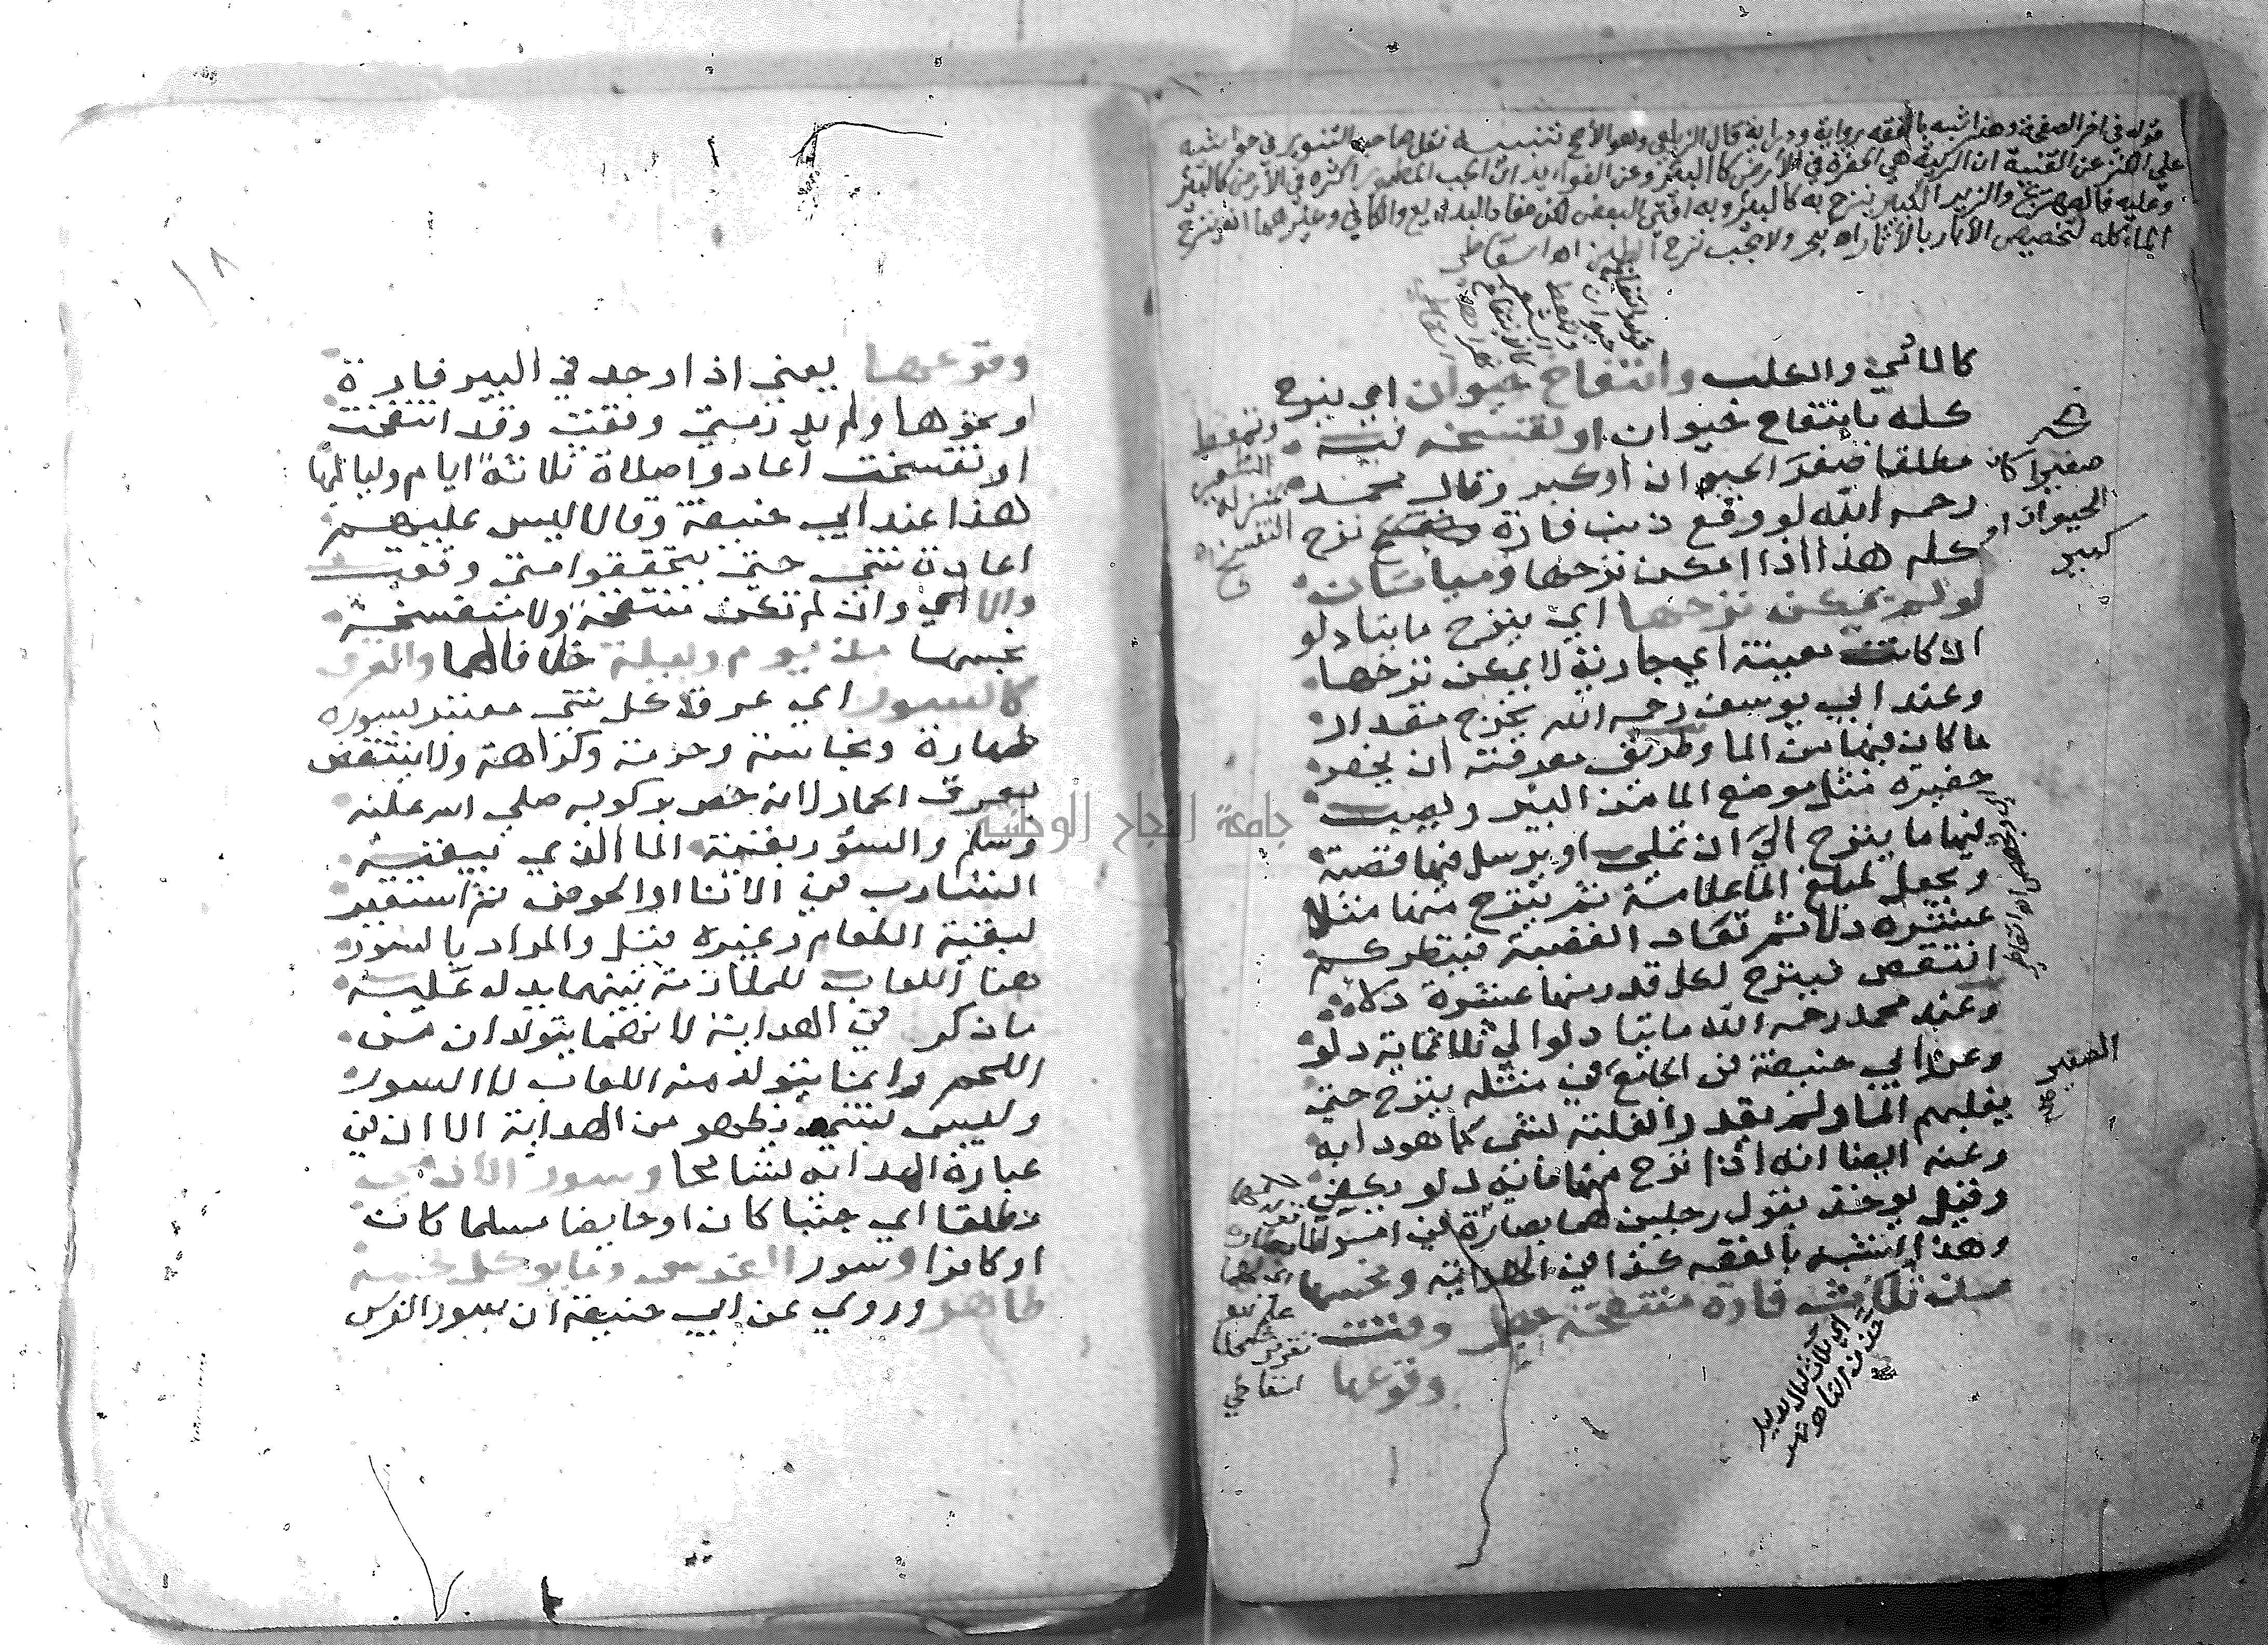 قوله في اخر الصفحة وهذا اشبه بالفقه رواية ودراية قال الزيلعي وهو الأصح تنبيه نقل صاحب التنوير في حواشيه
على الكنز عن القنية ان الركية هي الحفرة في الأرض كالبئر وعن الفوايد ان الحب المطمور اكثره في الأرض كالبئر
وعليه فالصهريج والزير الكبير ينزح به كالبئر وبه افتى البعض لكن مفاد البدايع والكافي وغيرهما انه ينزح
الماء كله لتخصيص الآبار بالآثار اه بحر ولا يجب نزح الطين اه اسقاطي
كالماشي والعلب وانتفاخ حيوان اي ينزح
كله بانتفاخ حيوان او تفسخه فيه
مطلقا صغر الحيوان او كبر وقال محمد
رحمه الله لو وقع ذنب فارة ينزح
كله هذا اذا امكن نزحها ومياتان
لو لم يمكن نزحها اي ينزح مايتا دلو
ان كانت معينة اي جارية لا يمكن نزحها
وعند ابي يوسف رحمه الله يخرج مقدار
ما كان فيها من الما وطريق معرفته ان يحفر
حفيرة مثل موضع الما من البير ويصب
فيها ما ينزح الي ان تملي او يرسل فيها قصبة
ويجعل لمبلغ الما علامة ثم ينزح منها مثلا
عشرة دلا ثم تعاد القصبة فينظر كم
انتقص فينزح لكل قدر منها عشرة دلاء
وعند محمد رحمه الله مايتا دلو الي ثلاثماية دلو
وعن ابي حنيفة في الجامع في مثله ينزح حتي
يغلبهم الما ولم يقدر الغلبة لشي كما هو دابه
وعنه ايضا انه اذا نزح منها ماية دلو يكفي
وقيل يوخذ بقول رجلين لهما بصارة في امر الما
وهذا اشبه بالفقه كذا في الهداية ونجسها
منذ ثلاث فارة منتفخة جهل وقت
وقوعها
صغيرا كان
الحيوان او
كبير
وتمعط
التفسخ
الصغير
اسقاطي
١٨
وقوعها يعني اذا وجد في البير فارة
او نحوها ولم يدر متي وقعت وقد انتفخت
او تفسخت اعادوا صلاة ثلاثة ايام ولياليها
هذا عند ابي حنيفة وقالا ليس عليهم
اعادة شي حتي يتحققوا متي وقعت
والا اي وان لم تكن منتفخة ولا متفسخة
نجسها منذ يوم وليلة خلافا لهما والعرق
كالسور اي عرق كل شي معتبر بسوره
طهارة ونجاسة وحرمة وكراهة ولا ينتقض
بعرق الحمار لانه خص بركوبه صلي الله عليه
وسلم والسؤر بقية الما الذي يبقيه
الشارب في الانا او الحوض ثم استعير
لبقية الطعام وغيره قيل والمراد بالسور
هنا اللعاب للملازمة بينهما يدل عليه
ما ذكر في الهداية لانهما يتولدان من
اللحم وانما يتولد منه اللعاب لا السور
وليس بشي يظهر من الهداية الا ان في
عبارة الهداية تسامحا وسور الآدمي
مطلقا اي جنبا كان او حايضا مسلما كان
او كافرا وسور الفرس وما يوكل لحمه
طاهر وروي عن ابي حنيفة ان سور الفرس
جامعة النجاح الوطنية